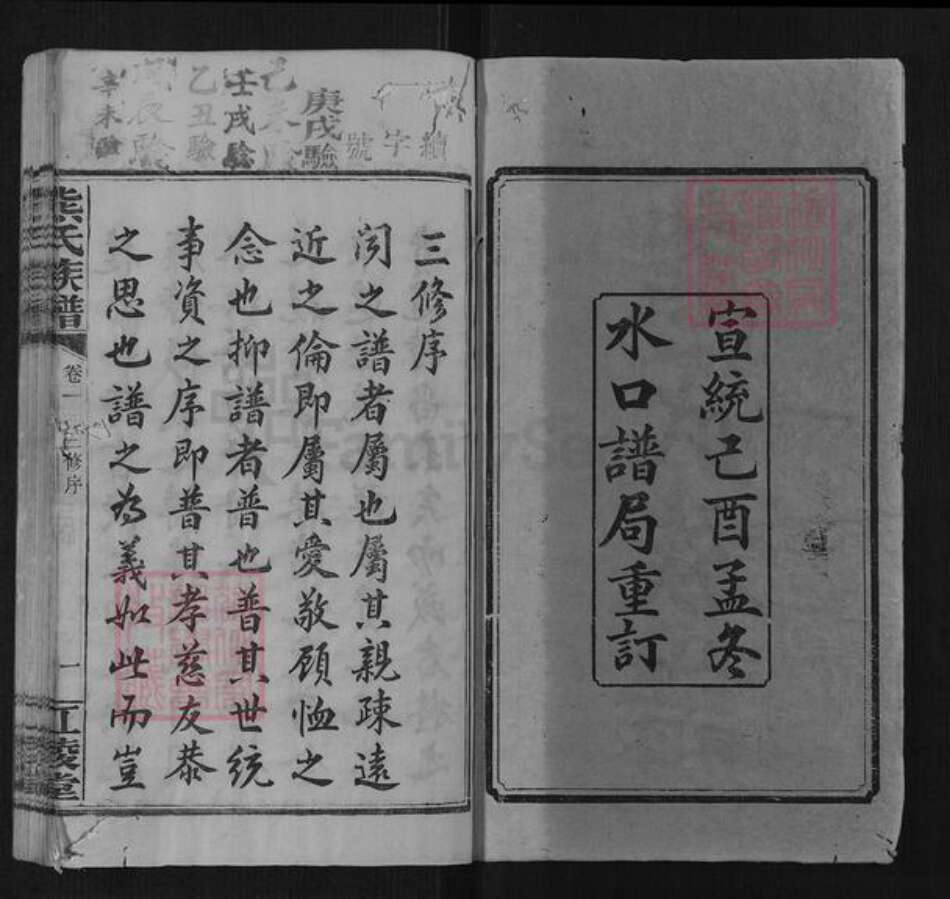 宣統己酉孟冬
水口譜局重訂
續字號
庚戌驗
壬戌驗
乙丑驗
辛未驗
三修序
闵之譜者屬也屬其親疎遠
近之倫即屬其愛敬顧恤之
念也抑譜者普也普其世統
事資之序即普其孝慈友恭
之思也譜之為義如此而豈
熊氏族譜
卷一
三修序
一
江陵堂